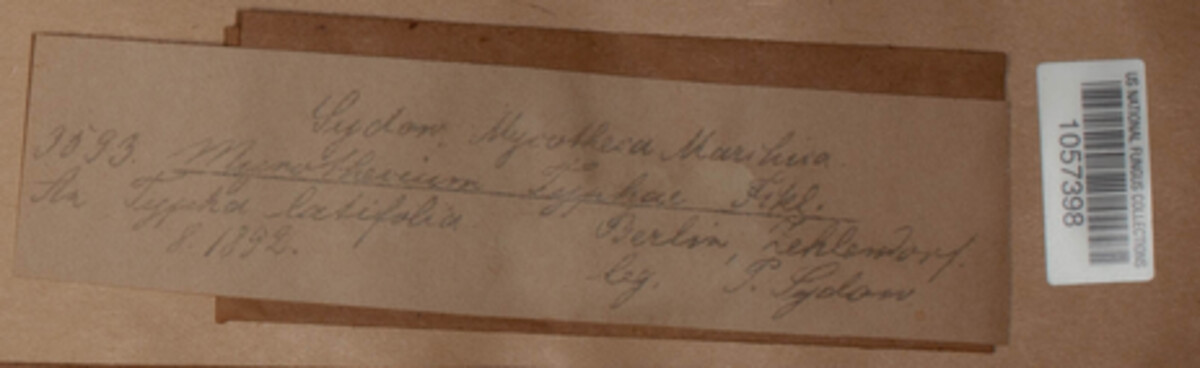 Sydow, Mycotheca Marchica.
3593. Myrothecium Typhae Fckl.
An Typha latifolia
Berlin, Zehlendorf.
8. 1892.
leg. P. Sydow
US NATIONAL FUNGUS COLLECTIONS
1057398